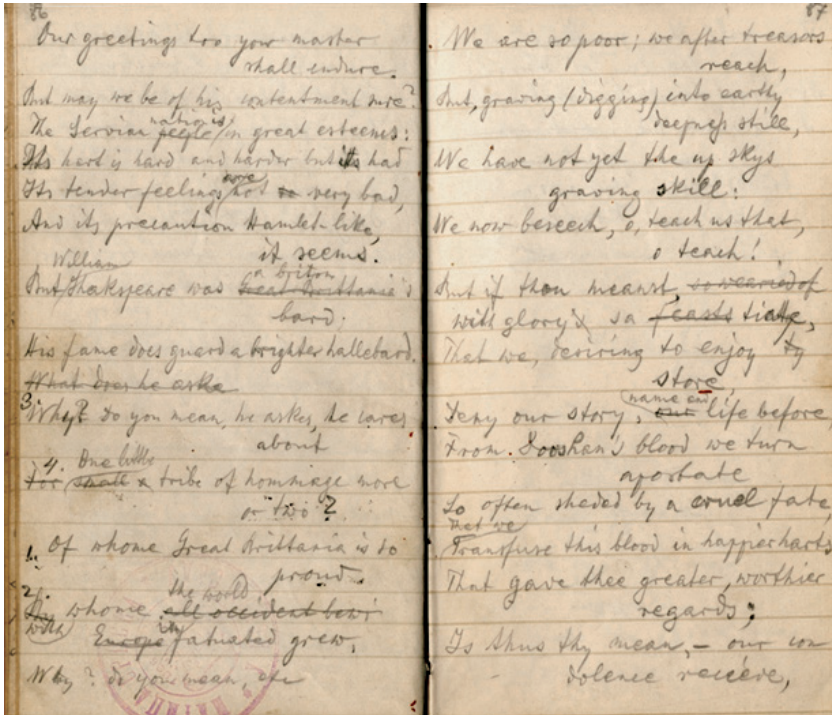 86
Our greetings too your master
shall endure.
But may we be of his contentment sure?
The Servian people nation is in great esteems:
Its hart is hard and harder but its had
Its tender feelings were not so very bad,
And its precaution Hamlet-like,
it seems.
William
But Shakspeare was a briton Great Brittania's
bard;
His fame does guard a brighter hallebard.
What does he aske
3. Why? do you mean, he askes, he cares
about
4. One little
For small a tribe of hommage more
or two?
1. Of whome Great Brittania is so
proud
the world
2. whome all occident
with Europe in fatuated grew,
Why? do you mean, etc
87
We are so poor; we after treasors
reach,
But, graving (digging) into earthy
deepness still,
We have not yet the up skys
graving skill:
We now beseech, o, teach us that,
o teach!
But if thou meanst, so wearied of
with glory's sa feasts tiate,
That we, desiring to enjoy ty
store,
name and
Deny our story, our life before,
From Dooshan's blood we turn
apostate
So often sheded by a cruel fate,
that we
Transfuse this blood in happier harts
That gave thee greater, worthier
regards;
Is thus thy mean, – our con
dolence receive,